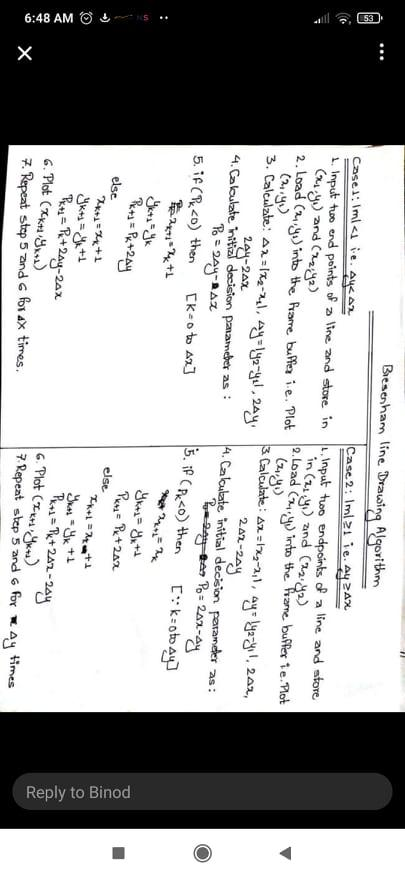 6:48 AM
NS
53
Bresenham line Drawing Algorithm
Case1: |m|<1 i.e. Δy<Δx
1. Input two end points of a line and store in
(x1,y1) and (x2,y2)
2. Load (x1,y1) into the frame buffer i.e. Plot
(x1,y1)
3. Calculate: Δx=|x2-x1|, Δy=|y2-y1|, 2Δy,
2Δy-2Δx
4. Calculate initial decision parameter as:
P0 = 2Δy-Δx
5. if (Pk<0) then [k=0 to Δx]
xk+1=xk+1
yk+1=yk
Pk+1=Pk+2Δy
else
xk+1=xk+1
yk+1=yk+1
Pk+1=Pk+2Δy-2Δx
6. Plot (xk+1,yk+1)
7. Repeat step 5 and 6 for Δx times.
Case2: |m|≥1 i.e. Δy≥Δx
1. Input two endpoints of a line and store
in (x1,y1) and (x2,y2)
2. Load (x1,y1) into the frame buffer i.e. Plot
(x1,y1)
3. Calculate: Δx=|x2-x1|, Δy=|y2-y1|, 2Δx,
2Δx-2Δy
4. Calculate initial decision parameter as:
P0=2Δx-Δy
5. if (Pk<0) then [∵k=0 to Δy]
xk+1=xk
yk+1=yk+1
Pk+1=Pk+2Δx
else
xk+1=xk+1
yk+1=yk+1
Pk+1=Pk+2Δx-2Δy
6. Plot (xk+1,yk+1)
7. Repeat step 5 and 6 for Δy times
Reply to Binod